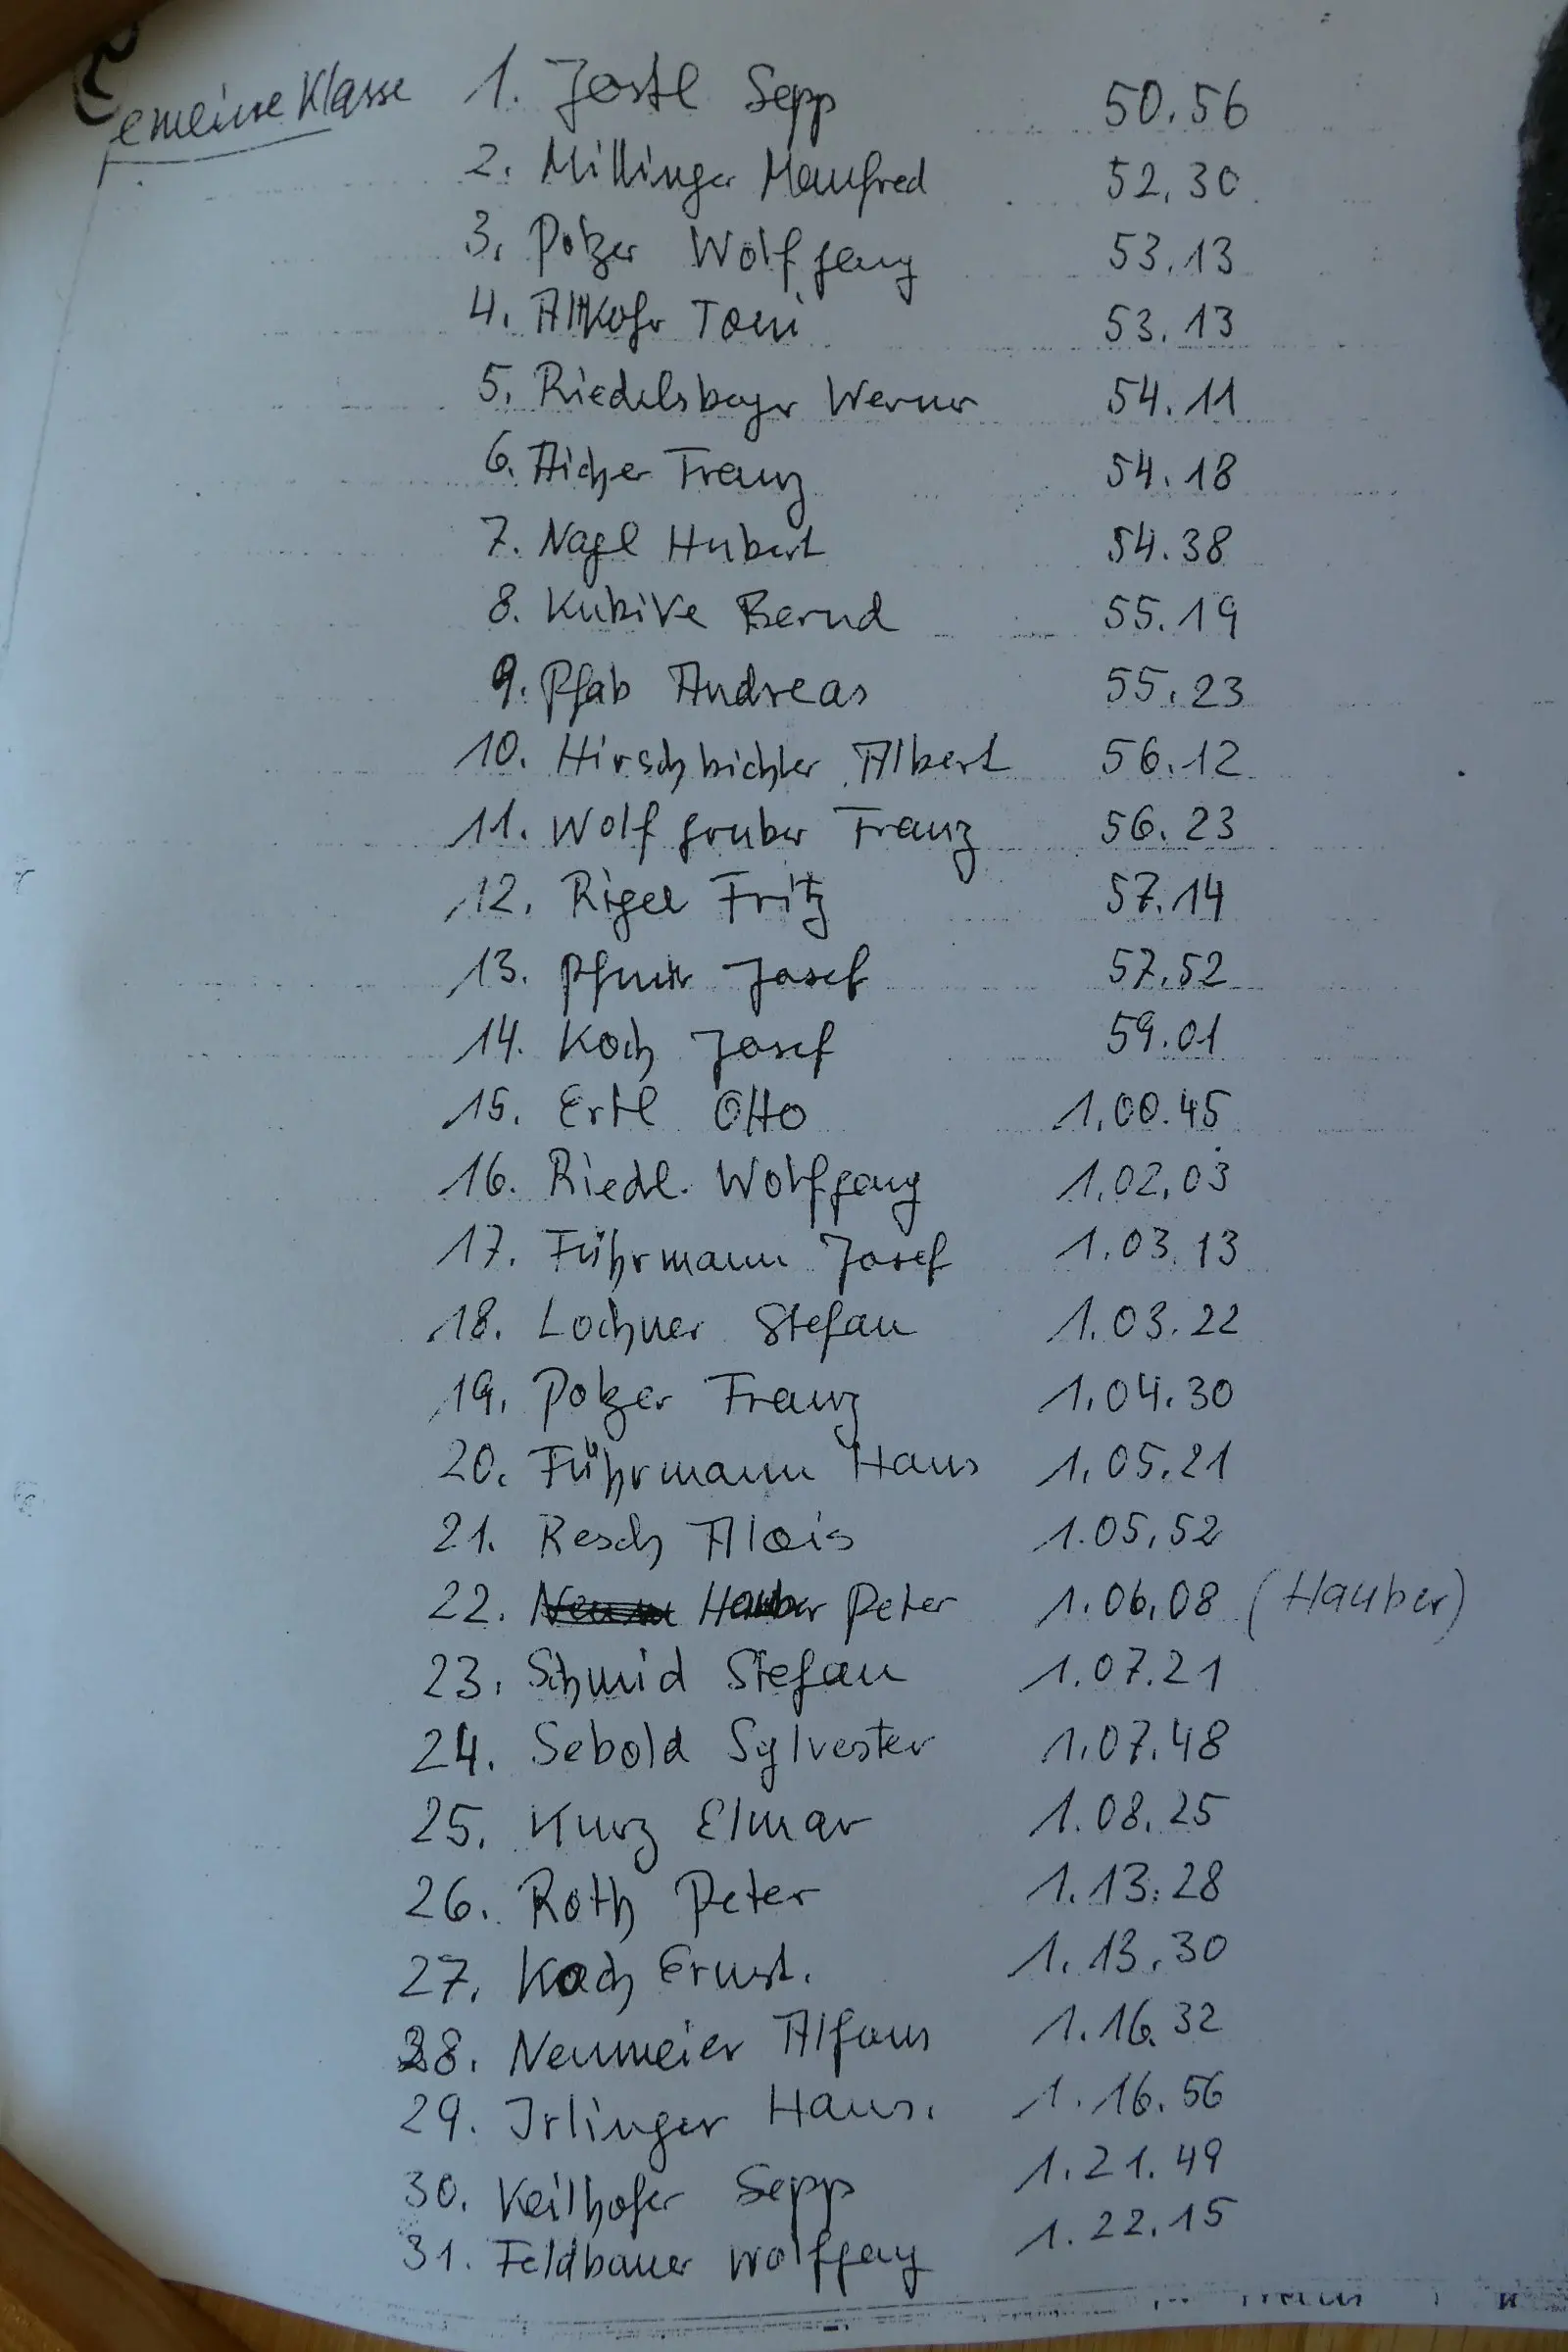 Gemeine Klasse
1. Jostl Sepp 50.56
2. Millinger Manfred 52.30
3. Polzer Wolfgang 53.13
4. Altkofr Toni 53.13
5. Riedelsbeyr Werner 54.11
6. Aicher Franz 54.18
7. Nagl Hubert 54.38
8. Kubike Bernd 55.19
9. Pfab Andreas 55.23
10. Hirschbichler Albert 56.12
11. Wolfgruber Franz 56.23
12. Rigel Fritz 57.14
13. Josef 57.52
14. Koch Josef 59.01
15. Ertl Otto 1.00.45
16. Riedl. Wolfgang 1.02.03
17. Führmann Josef 1.03.13
18. Lochner Stefan 1.03.22
19. Polzer Franz 1.04.30
20. Führmann Hans 1.05.21
21. Resch Alois 1.05.52
22. Hauber Peter 1.06.08 (Hauber)
23. Schmid Stefan 1.07.21
24. Sebold Sylvester 1.07.48
25. Kurz Elmar 1.08.25
26. Roth Peter 1.13.28
27. Koch Ernst. 1.13.30
28. Neumeier Alfons 1.16.32
29. Irlinger Hans. 1.16.56
30. Keilhofer Sepp 1.21.49
31. Feldbauer Wolfgang 1.22.15